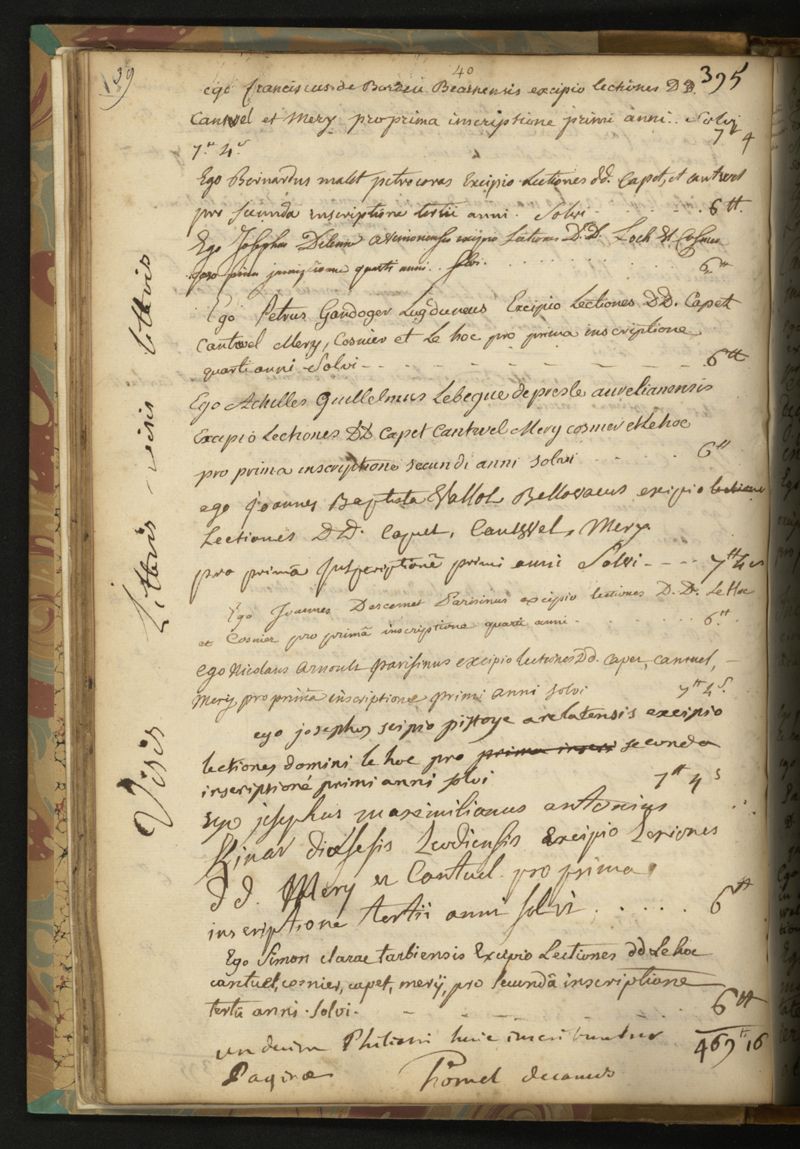 139
40
395
ego franciscus de Bordeu Bearnensis excipio lectiones D D.
Cantwel et Mery pro prima inscriptione primi anni.. Solvi
7 4
7.tt 4.s
Ego Bernardus malet petrocoras Excipio Lectiones dd. Capet, et cantwel
pro secunda inscriptione tertii anni. Solvi 6tt
Ego Josephus avenionensis excipio Lectiones D.D. Loch et Cosnier
pro prima inscriptione quarti anni.. solvi. 6tt
Ego Petrus Gandoger Lugduneus Excipio Lectiones DD. Capet
Cantwel Mery, Cosnier et Le hoc pro prima inscriptione
quarti anni Solvi 6tt
Ego Achilles Guillelmus Lebegue depresle aurelianensis
Excipio Lectiones DD Capet Cantwel Mery cosnier et Lehoc
pro prima inscriptione secundi anni solvi 6tt
ego Joannes Baptista Wallot Bellovacus excipio lectiones
Lectiones D.D. Capet, Cantwel, Mery
pro primâ Inscriptionê primi anni Solvi 7tt 4s
Ego Joannes Descemet Parisinus excipio lectiones D.D. Le Hoc
et Cosnier pro primâ inscriptione quarti anni. 6.tt
Ego Nicolaus Arnoult parisinus excipio lectiones Dd. capet, cantuel,
Mery pro prima inscriptione primi anni solvi 7tt 4s.
ego josephus scipio pistoye arelatensis excipio
lectiones domini le hoc pro prima inscri secunda
inscriptioné primi anni solvi 7tt 4s
Ego josephus maximilianus antonius
Kinar diœsesis Leodiensis Excipio Lexiones
d d. Mery et Cantuel pro prima
inscriptione tertii anni solvi 6tt
Ego Simon clarac tarbiensis Excipio Lectiones dd Le hoc
cantuel, cosnier, capet, merÿ, pro secundâ inscriptione
tertii anni. solvi. 6tt
undecim Philiatri huic inscribuntur 469tt 16
Paginæ Thomel decanus
Visis Litteris visis litteris